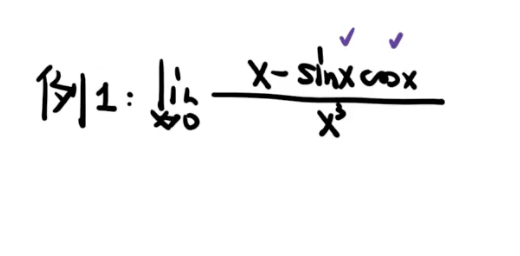 例1: lim x→0 (x - sinx cosx) / x³